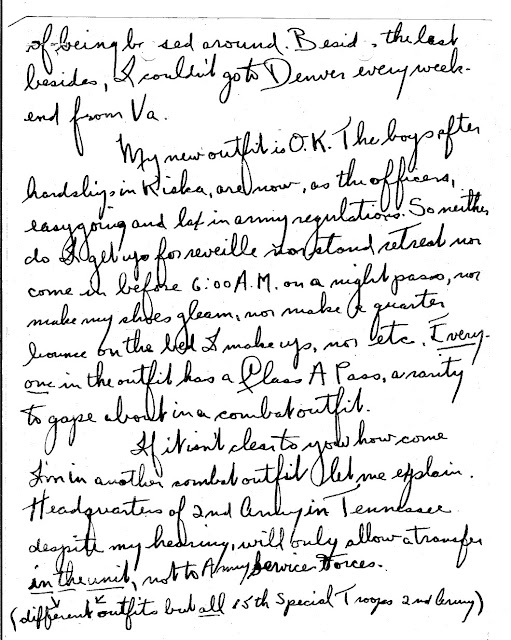 of being b sed around. Besid , the last
besides, I couldn't go to Denver every week-
end from Va.
My new outfit is O.K. The boys after
hardships in Kiska, are now, as the officers,
easy going and lax in army regulations. So neither
do I get up for reveille nor stand retreat nor
come in before 6:00 A.M. on a night pass, nor
make my shoes gleam, nor make a quarter
bounce on the bed I make up, nor etc. Every-
one in the outfit has a Class A Pass, a rarity
to gape about in a combat outfit.
If it isn't clear to you how come
I'm in another combat outfit let me explain.
Headquarters of 2nd Army in Tennessee
despite my hearing, will only allow a transfer
in the unit, not to Army Service Forces.
(different outfits but all 15th Special Troops 2nd Army)